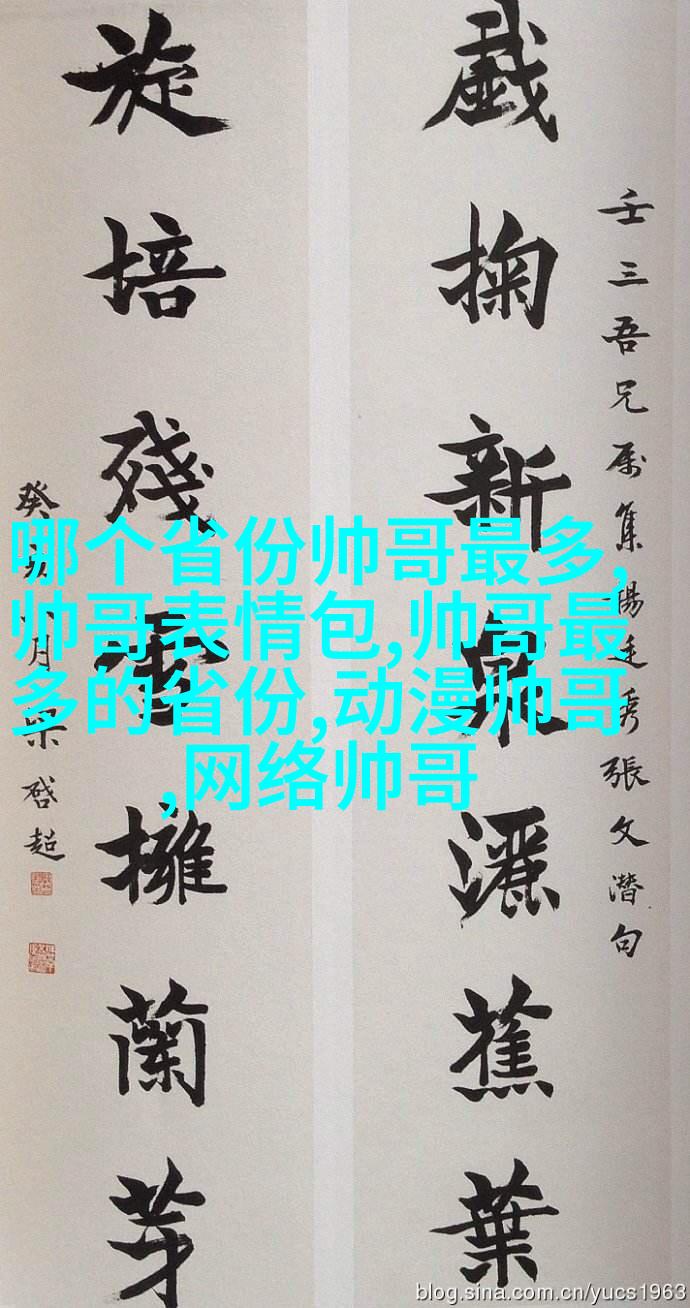 壬三吾兄属集楊廷秀張文潛句
戲掬新泉灑蕉葉
旋培殘雪擁蘭芽
癸亥月梁啓超
哪个省份帅哥最多,
帅哥表情包,帅哥最
多的省份,动漫帅哥
,网络帅哥
blog.sina.com.cn/yucs1963